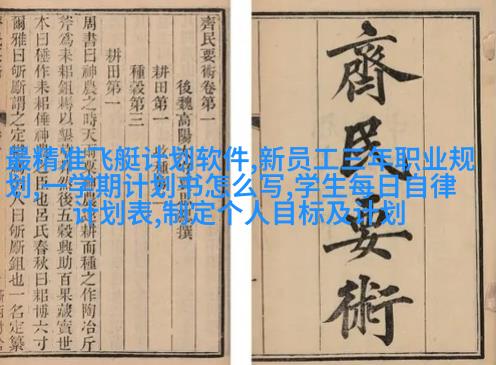 齊民要術
齊民要術卷第一
後魏高陽撰
耕田第一
種穀第三
耕田第一
周書曰神農之時天雨耕而種之作陶冶斤
斧為耒耜鋤以墾後五穀興助百果藏實世
本曰倕作耒耜倕神臣也呂氏春秋曰耜博六寸
爾雅曰斪斸謂之定人曰斪斸鉏也一名定纂
最精准飞艇计划软件,新员工三年职业规
划,一学期计划书怎么写,学生每日自律
计划表,制定个人目标及计划